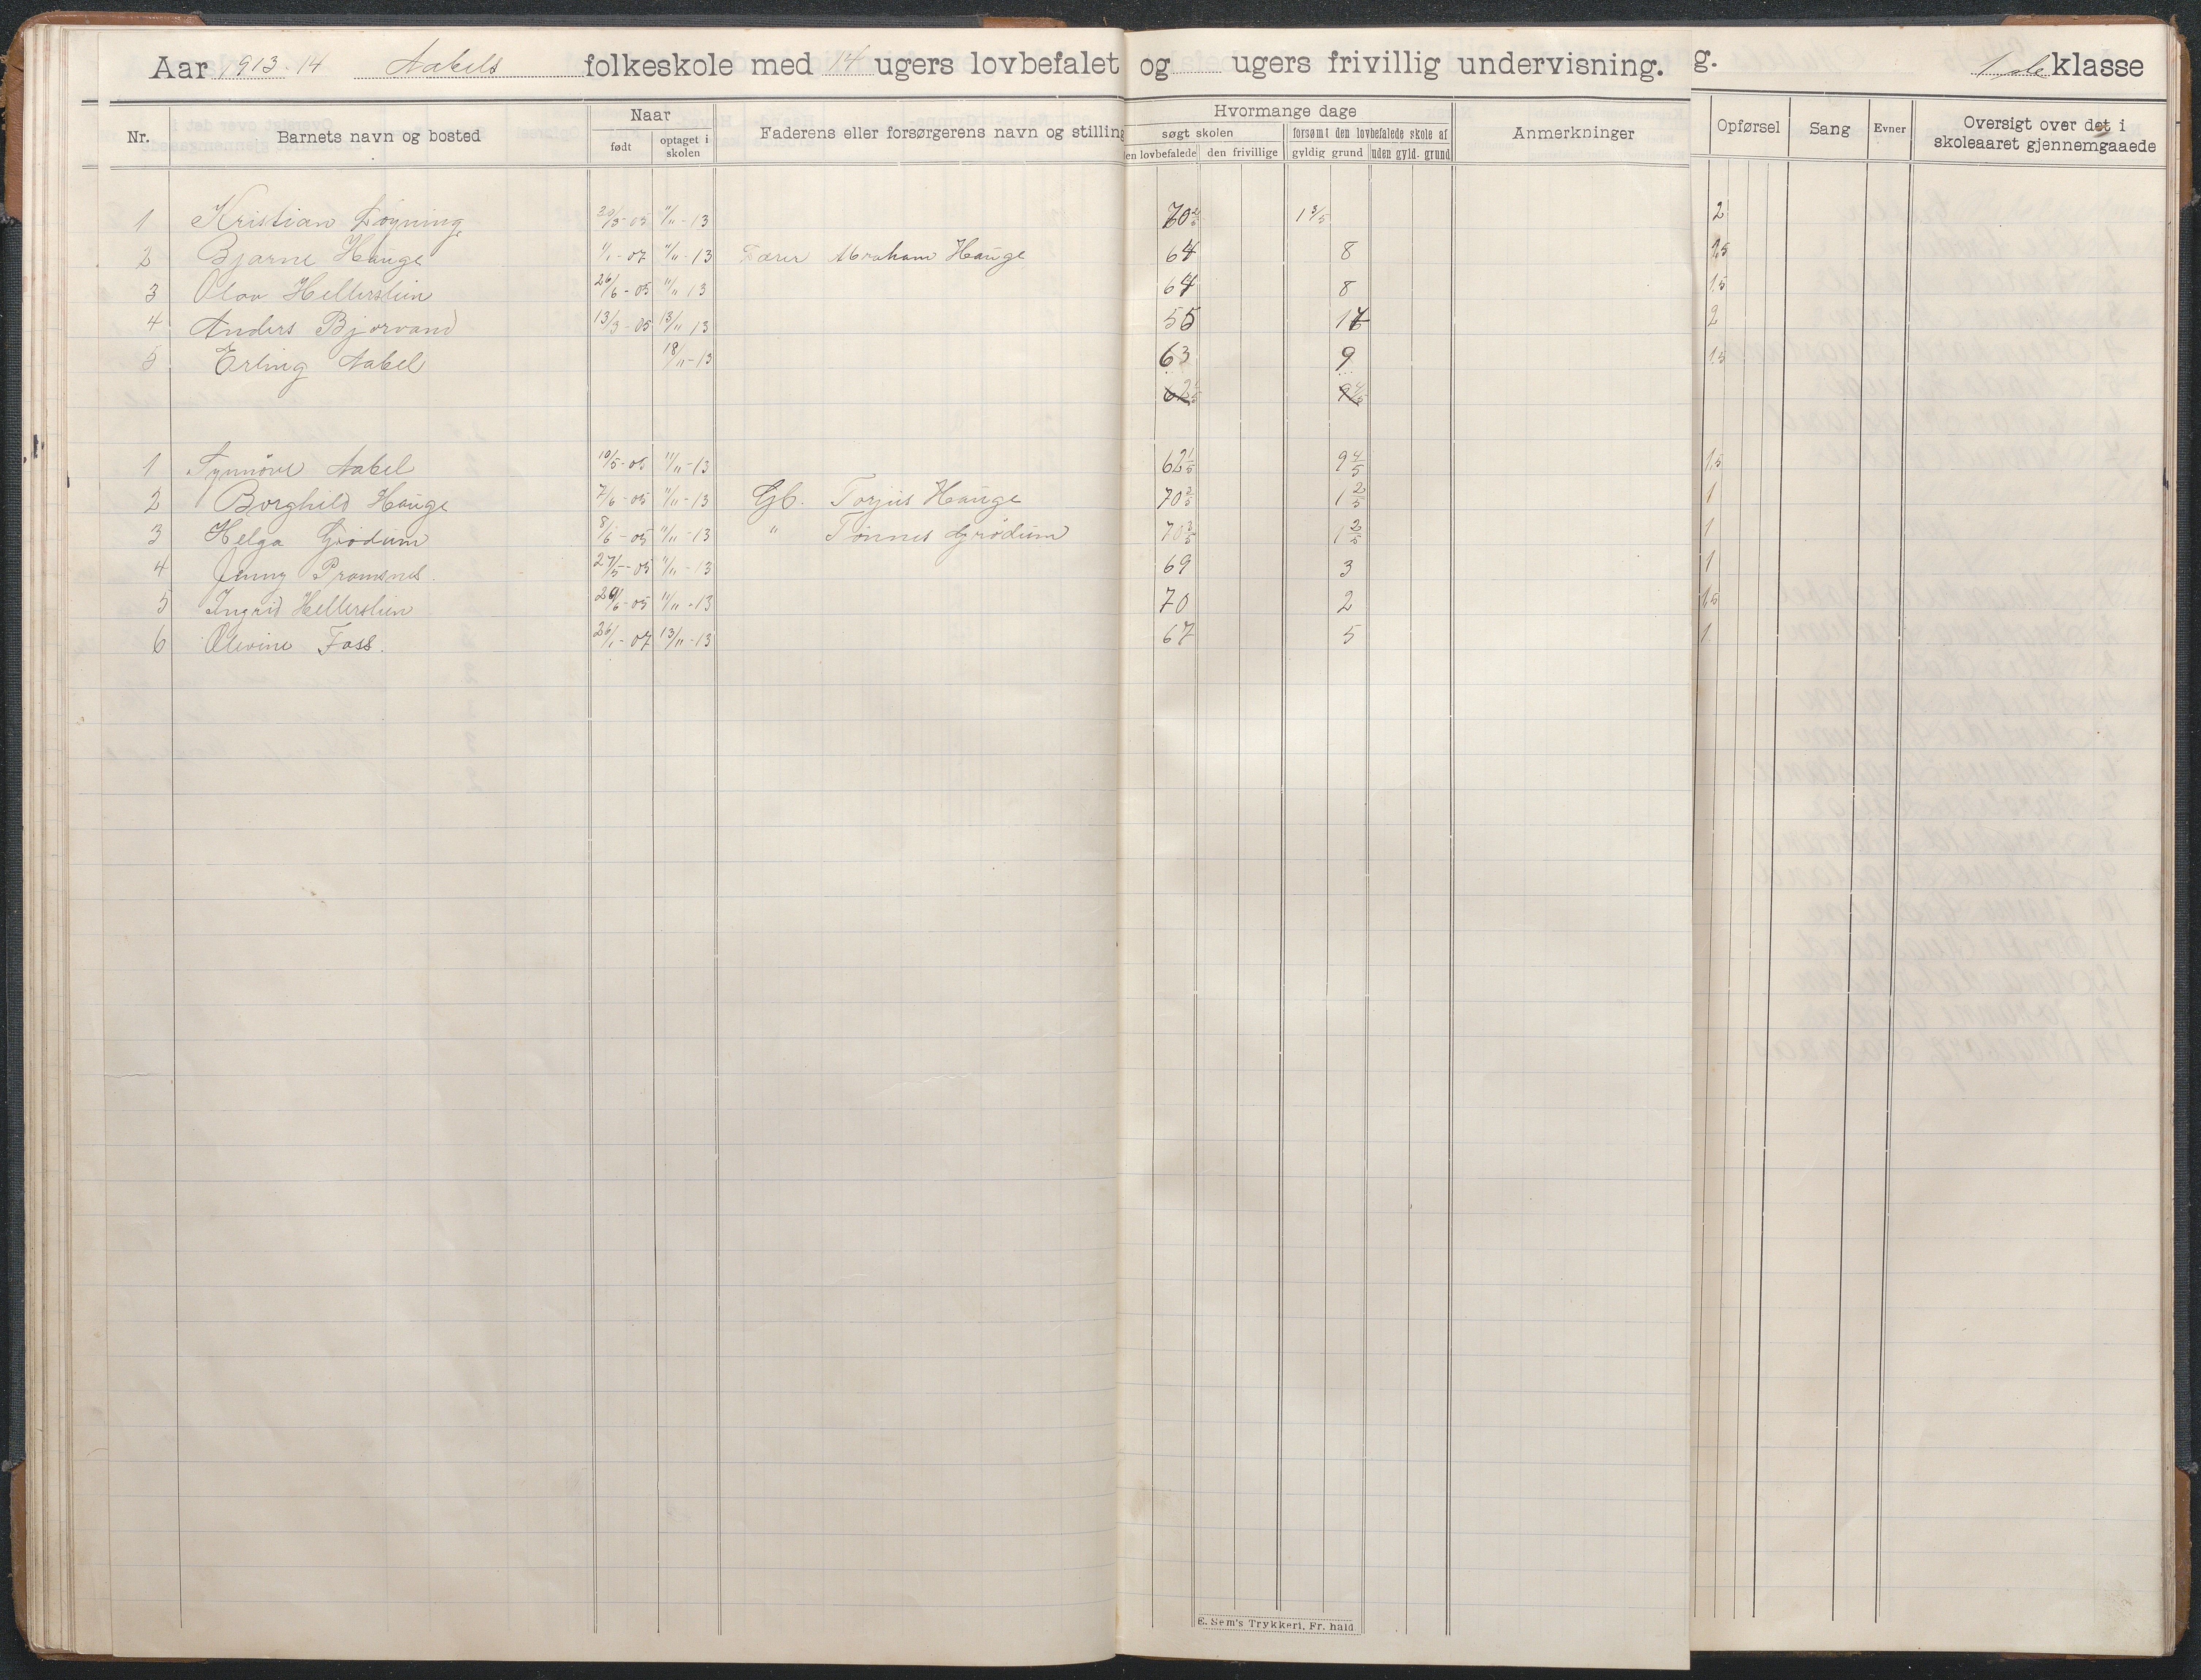 Aar 1913-14 Aabels folkeskole med 14 ugers lovbefalet og ugers frivillig undervisning. g. 1ste klasse
Nr. Barnets navn og bosted Naar født optaget i skolen Faderens eller forsørgerens navn og stilling Hvormange dage søgt skolen den lovbefalede den frivillige forsømt den lovbefalede skole af gyldig grund uden gyld. grund Anmerkninger Opførsel Sang Evner Oversigt over det i skoleaaret gjennemgaaede
1 Kristian 11/11-13 70 2/5 1 3/5 2
2 Bjarne Hauge 1/1-07 11/11-13 Abraham Hauge 64 8 1,5
3 Olav Hellerslien 26/6-05 11/11 13 64 8 1,5
4 Anders Bjorvand 13/3-05 13/11 13 55 2
5 Erling Aabel 18/11-13 63 9 1,5
62 1/5 9 4/5
1 Synnøve Aabel 10/5-05 11/11-13 62 1/5 9 4/5 1,5
2 Borghild Hauge 7/6-05 11/11-13 Gb. Torjus Hauge 70 3/5 1 2/5 1
3 Helga Grødum 8/6-05 11/11-13 " Tønnes Grødum 70 3/5 1 2/5 1
4 Jenny Pramsnes. 27/5-05 11/11-13 69 3 1
5 Ingrid Hellerslien 11/11-13 70 2 1,5
6 Olevine Foss. 26/1-07 13/11-13 67 5 1
E. Sem's Trykkeri, Fr.hald